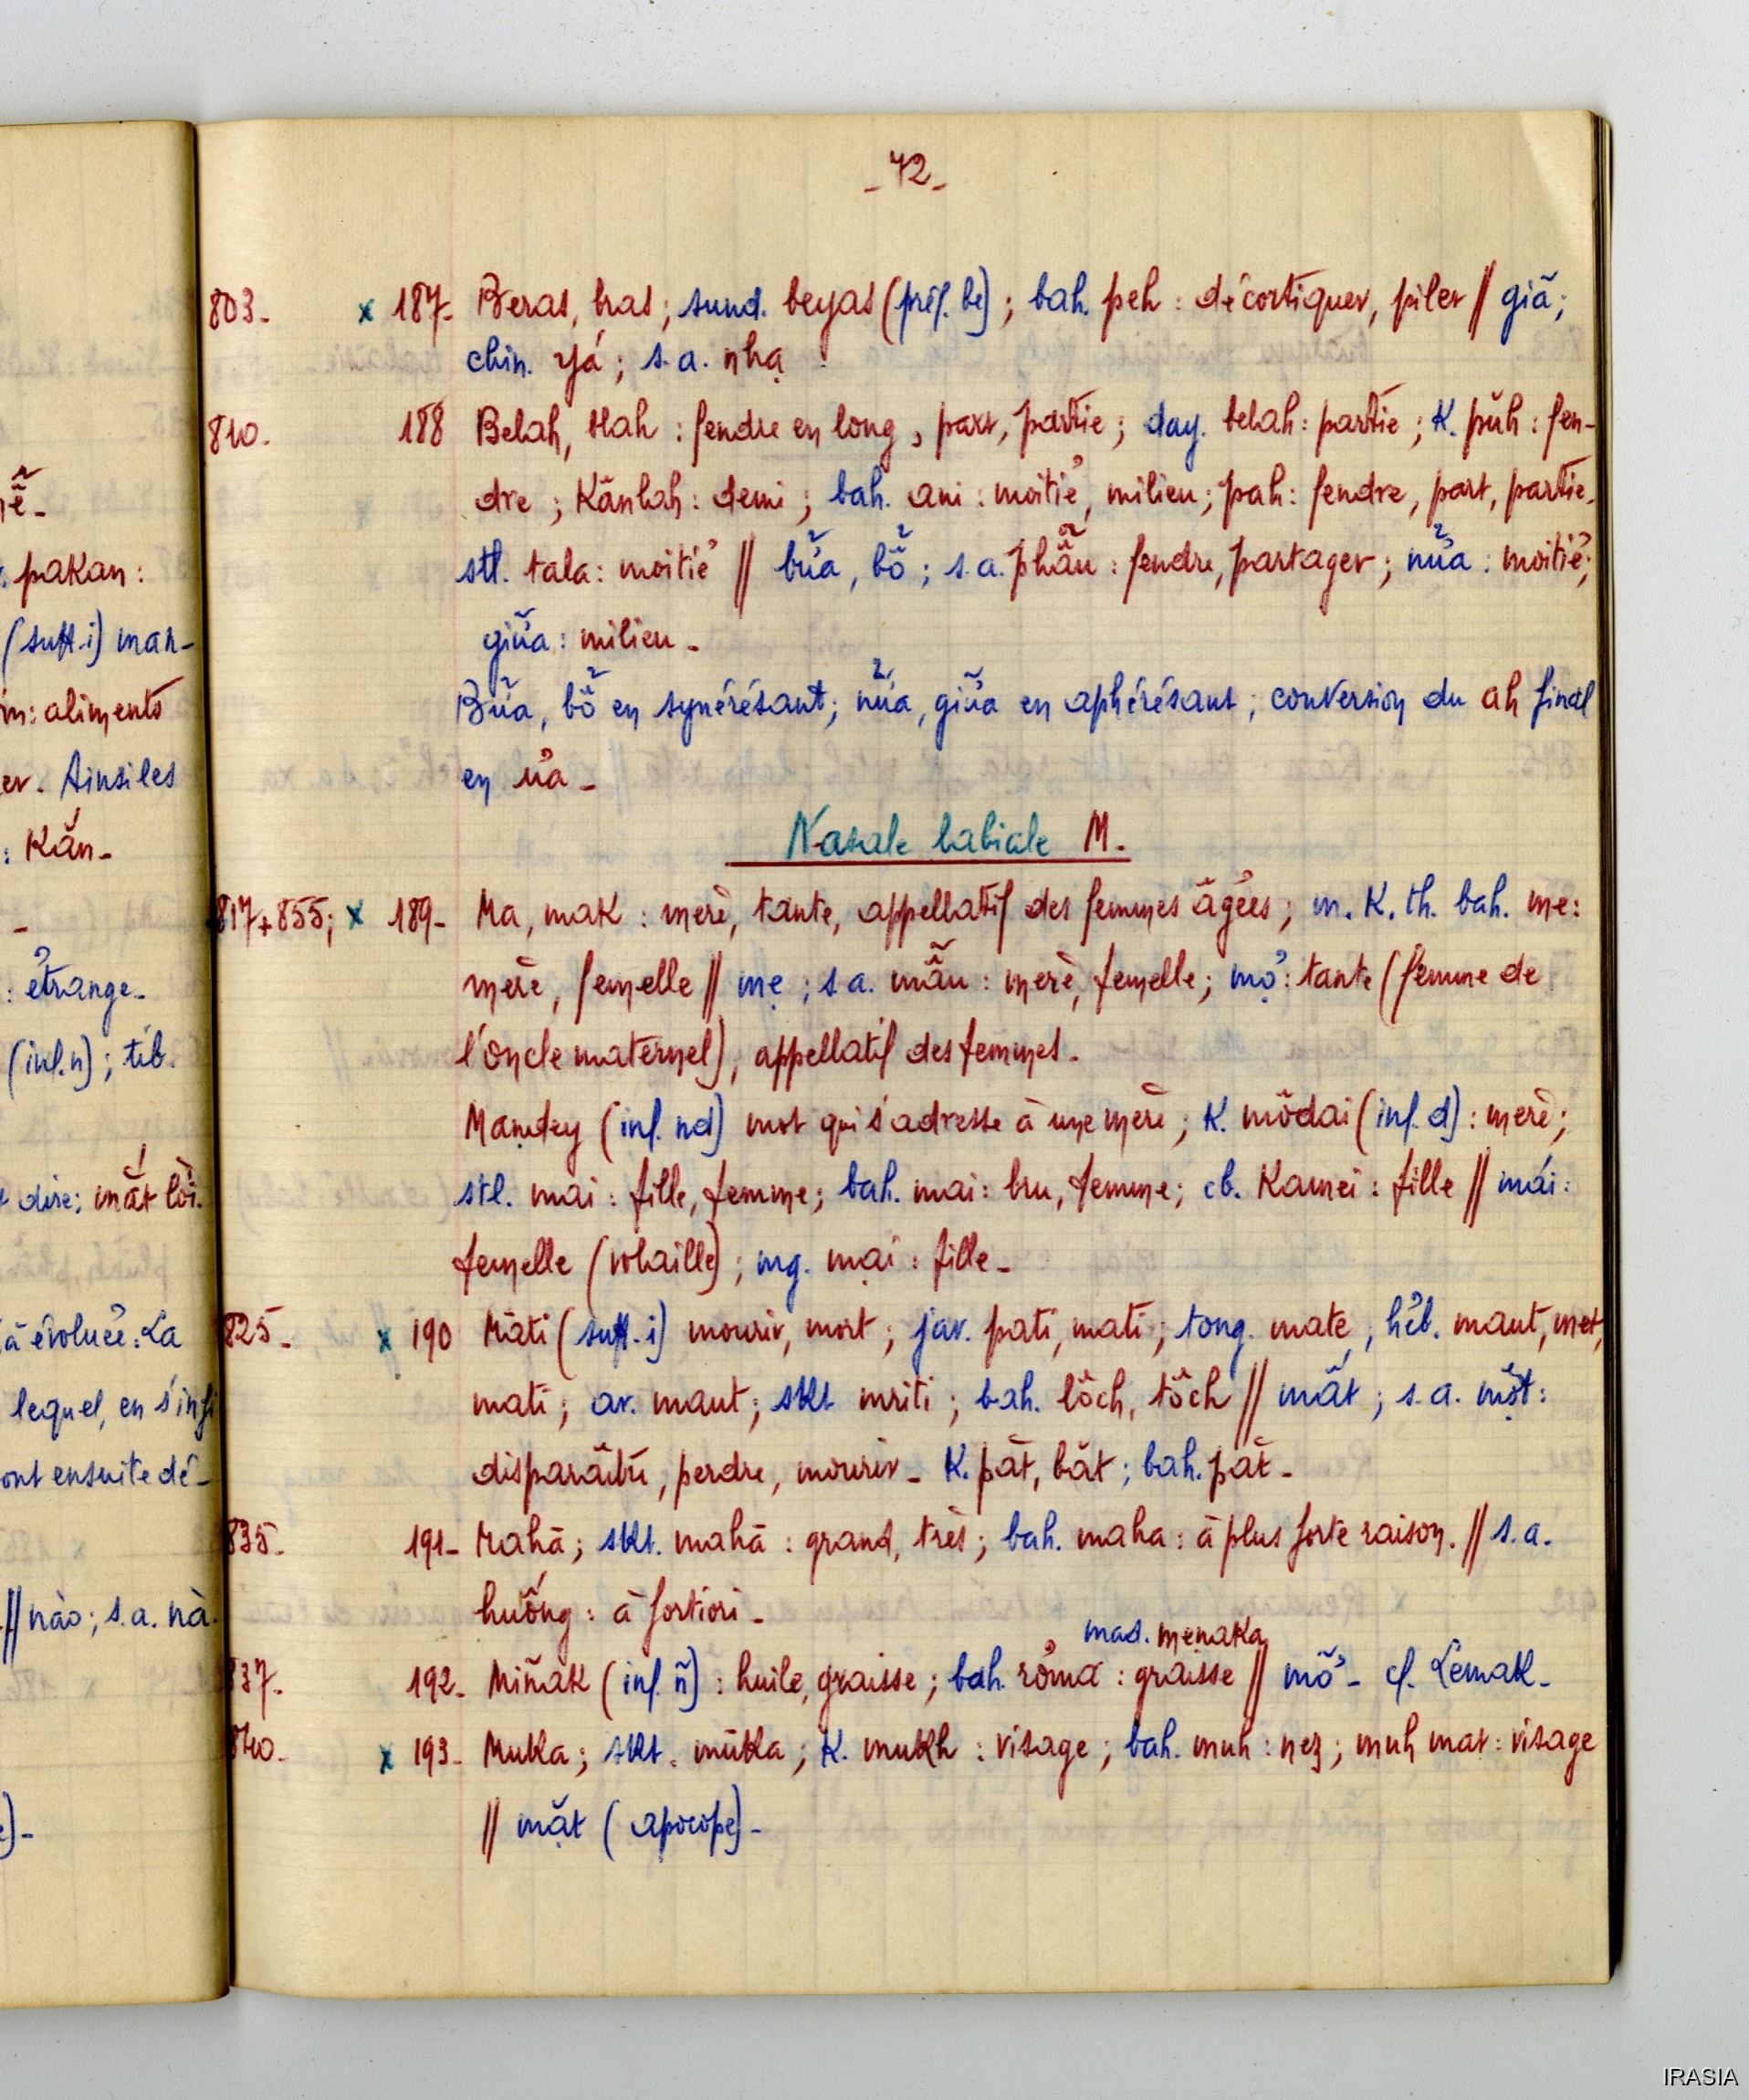 _ 72 _
803- x 187- Beras, bras ; sund. beyas (préf. be) ; bah. peh : décortiquer, piler // giã ;
chin. yá ; s.a. nhạ
810- 188 Belah, blah : fendre en long, part, partie ; day. belah : partie ; K. pŭh : fen-
dre ; Kănlah : demi ; bah. ani : moitié, milieu ; pah : fendre, part, partie.
stl. tala : moitié // bửa, bổ ; s.a. phẫu : fendre, partager ; nửa : moitié ;
giữa : milieu -
Bửa, bổ en synérésant ; nửa, giữa en aphérésant ; conversion du ah final
en ưa -
Nasale labiale M.
817+855; x 189- Ma, mak : mère, tante, appellatif des femmes âgées ; m. K. th. bah. me :
mère, femelle // mẹ ; s.a. mẫu : mère, femelle ; mợ : tante (femme de
l'oncle maternel), appellatif des femmes.
Mamdey (inf. nd) mot qui s'adresse à une mère ; K. môdai (inf. d) : mère ;
stl. mai : fille, femme ; bah. mai : bru, femme ; cb. Kamei : fille // mái :
femelle (volaille) ; mg. mại : fille -
825- x 190 Māti (suff. i) mourir, mort ; jav. pati, mati ; tong. mate ; héb. maut, met,
mati ; ar. maut ; skt mriti ; bah. lôch, tôch // mất ; s.a. một :
disparaître, perdre, mourir - K. păt, băt ; bah. păt -
835- 191- Mahā ; skt. mahā : grand, très ; bah. maha : à plus forte raison. // s.a.
huống : à fortiori -
mad. menaka
837- 192- Miñak (inf. ñ) : huile, graisse ; bah. rơmă : graisse // mỡ - cf. Lemak -
840- x 193- Muka ; skt. mūka ; K. mukh : visage ; bah. muh : nez ; muh mat : visage
// mặt (apocope) -
pakan :
(suff. i) man-
aliments
Ainsi les
: Kăn-
: étrange-
(inf. n) ; tib.
dire ; mất lời.
à évolué : La
lequel, en s'infi
ont ensuite dé-
// nào ; s.a. nà.
IRASIA